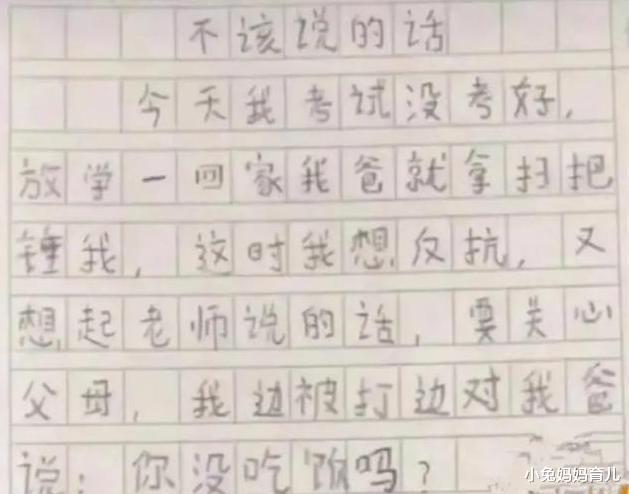 不该说的话
今天我考试没考好，
放学一回家我爸就拿扫把
锤我，这时我想反抗，又
想起老师说的话，要关心
父母，我边被打边对我爸
说：你没吃饭吗？
小兔妈妈育儿